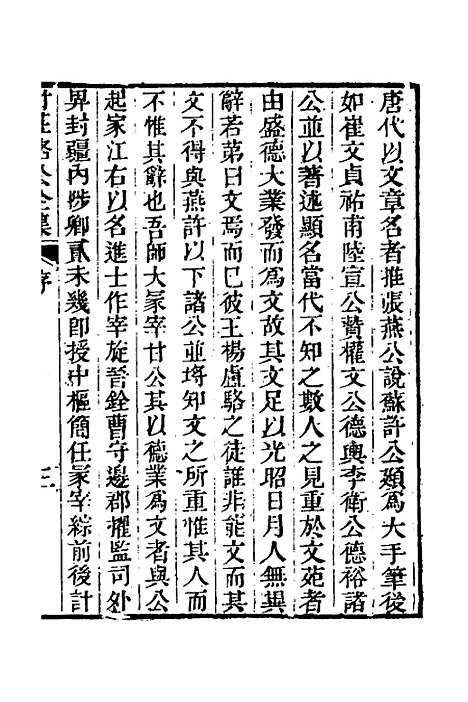 唐代以文章名者推張燕公說蘇許公頲為大手筆後
如崔文貞祐甫陸宣公贄權文公德輿李衛公德裕諸
公並以著述顯名當代不知之數人之見重於文苑者
由盛德大業發而為文故其文足以光昭日月人無異
辭若第曰文焉而已彼王楊盧駱之徒誰非能文而其
文不得與燕許以下諸公並埓知文之所重惟其人而
不惟其辭也吾師大冡宰甘公其以德業為文者與公
起家江右以名進士作宰旋晉銓曹守邊郡擢監司外
畀封疆內陟卿貳未幾卽授中樞簡任冡宰綜前後計
公全集
序
三